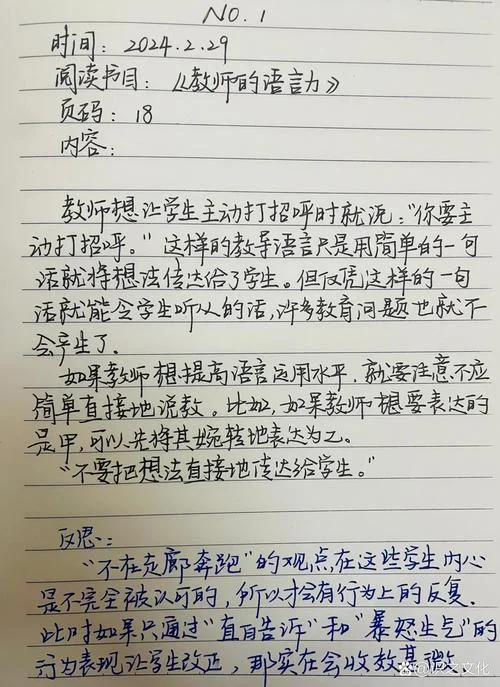 NO.1
时间：2024.2.29
阅读书目：《教师的语言力》
页码：18
内容：
教师想让学生主动打招呼时就说："你要主
动打招呼。"这样的教导语言只是用简单的一句
话就将想法传达给了学生。但仅凭这样的一句
话就能令学生听从的话，许多教育问题也就不
会产生了。
如果教师想提高语言运用水平，就要注意不应
简单直接地说教。比如，如果教师想要表达的
是甲，可以先将其婉转地表达为乙。
"不要把想法直接地传达给学生。"
反思：
"不在走廊奔跑"的观点，在这些学生内心
是不完全被认可的，所以才会有行为上的反复。
此时如果只通过"直白告诉"和"暴怒生气"的
行为表现让学生改正，那实在会收效甚微。